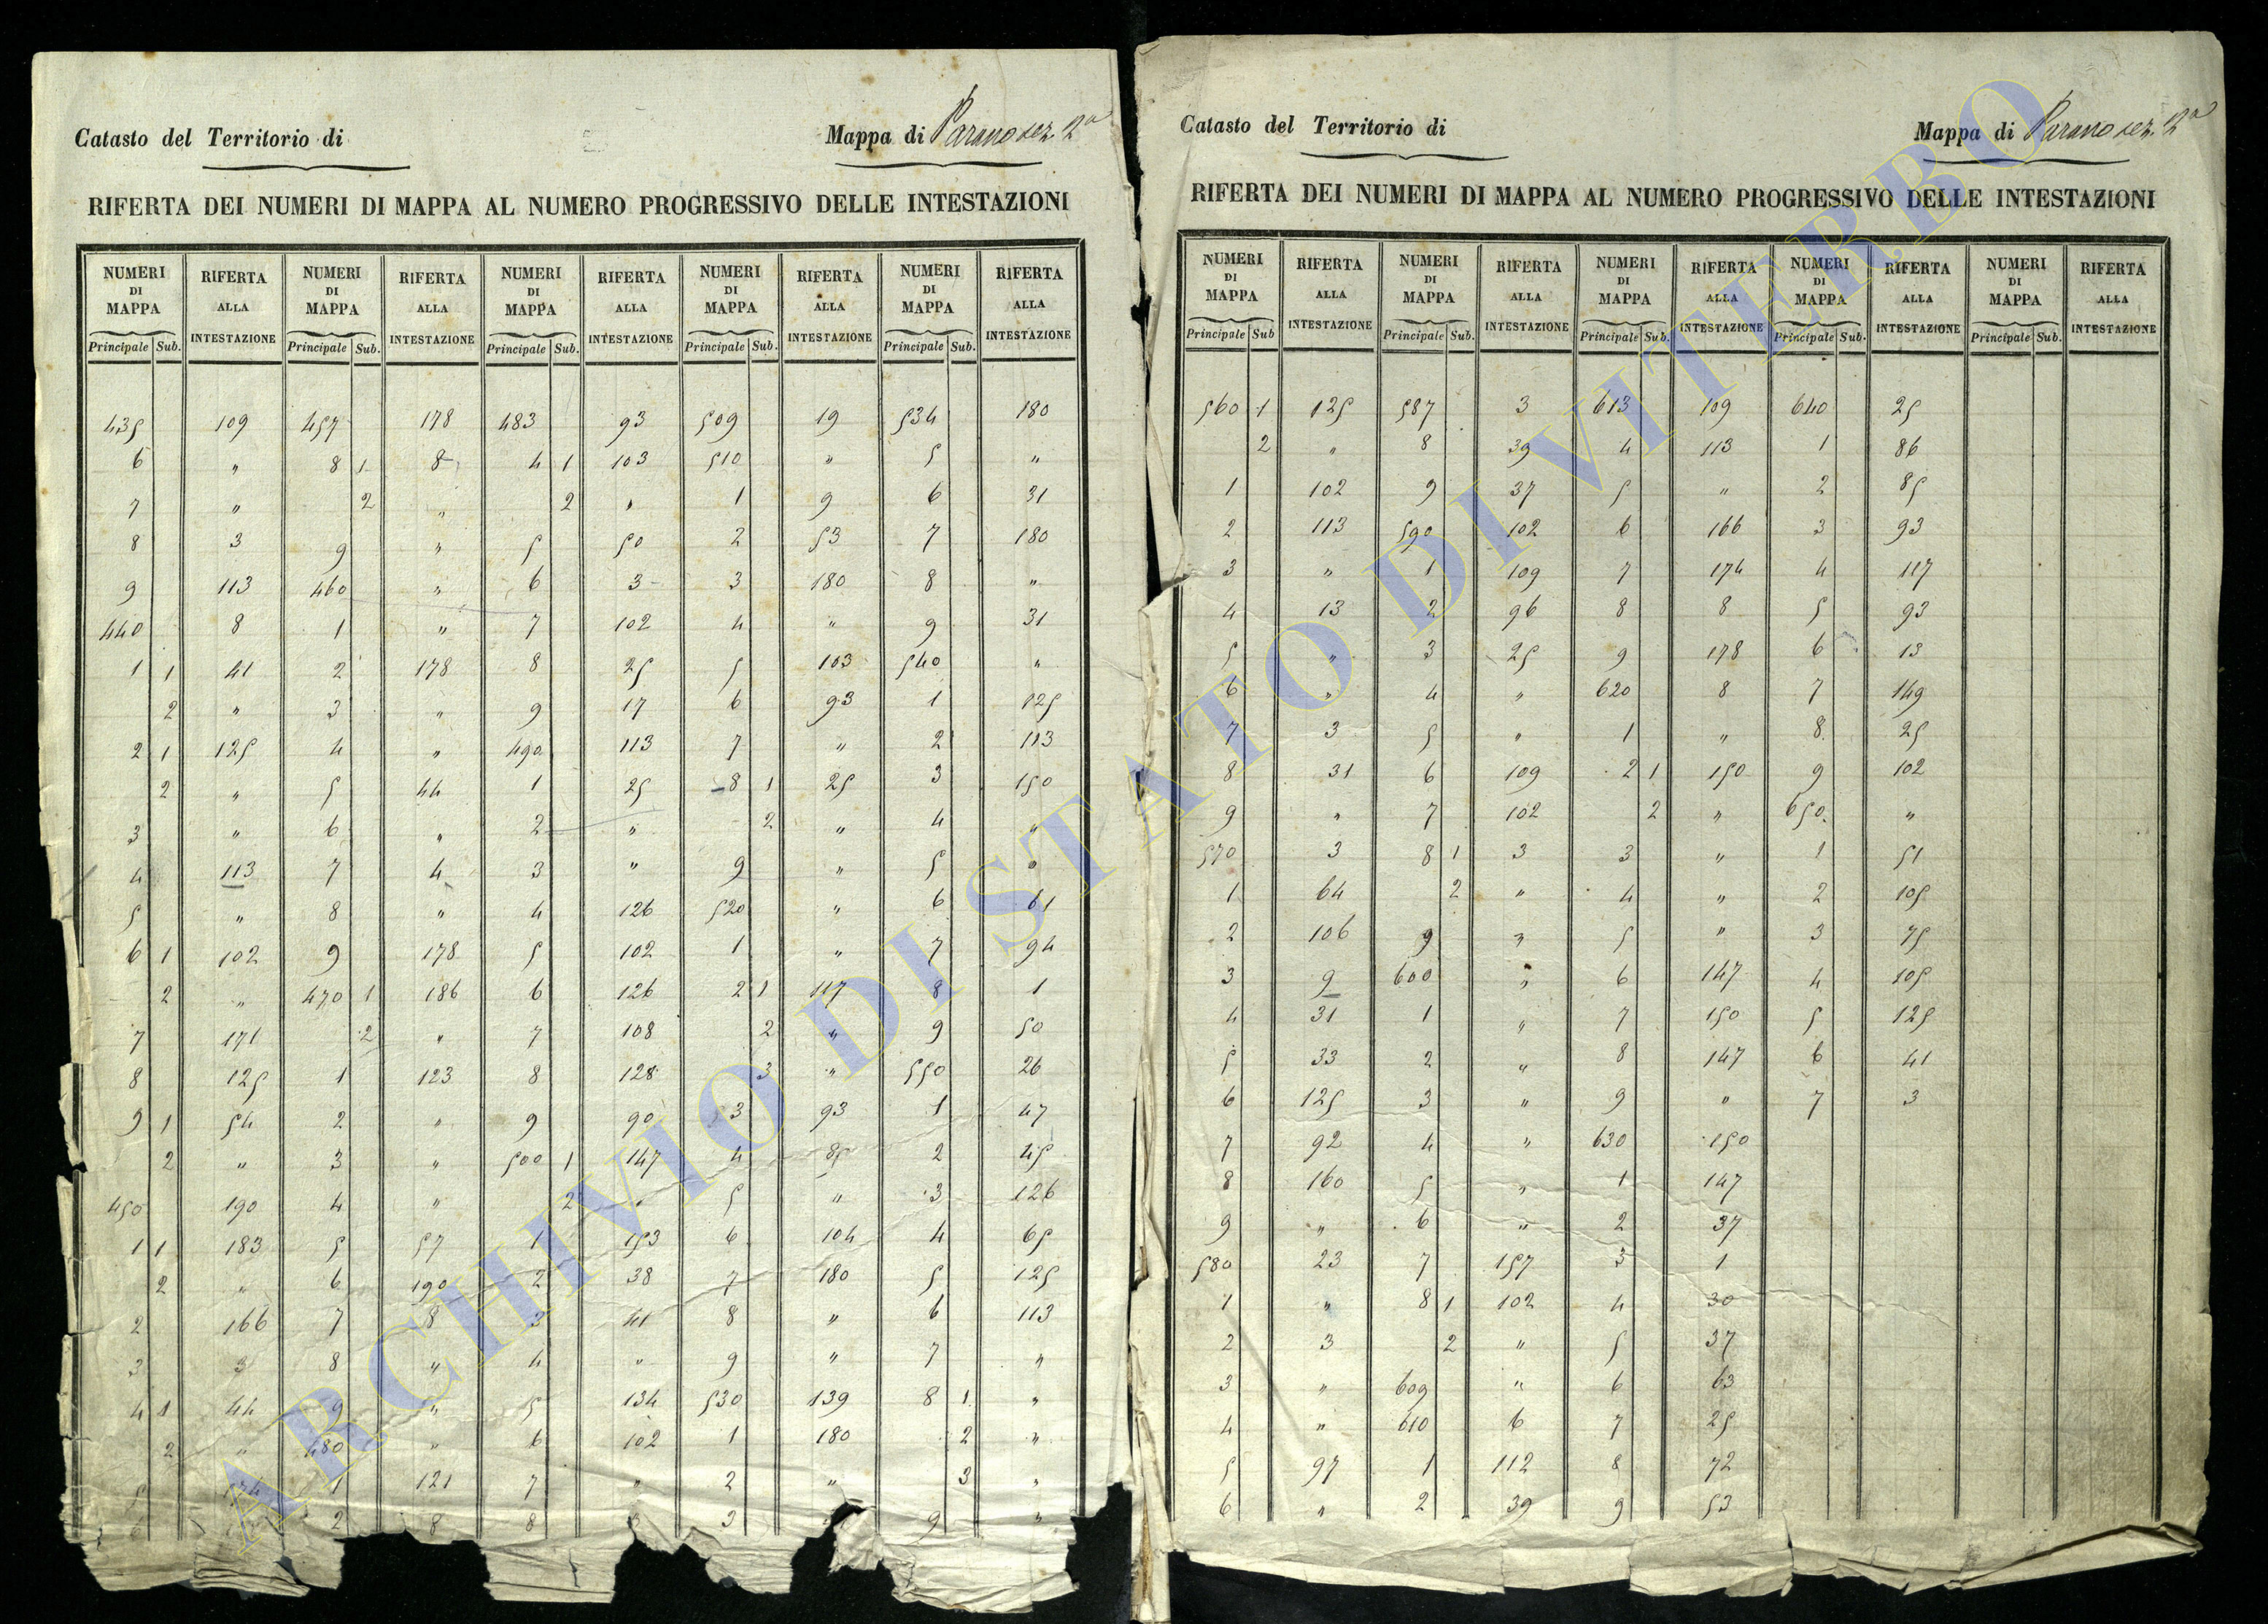 Catasto del Territorio di
Mappa di Parano sez. 2ª
RIFERTA DEI NUMERI DI MAPPA AL NUMERO PROGRESSIVO DELLE INTESTAZIONI
NUMERI DI MAPPA RIFERTA ALLA INTESTAZIONE NUMERI DI MAPPA RIFERTA ALLA INTESTAZIONE NUMERI DI MAPPA RIFERTA ALLA INTESTAZIONE NUMERI DI MAPPA RIFERTA ALLA INTESTAZIONE NUMERI DI MAPPA RIFERTA ALLA INTESTAZIONE
Principale Sub. Principale Sub. Principale Sub. Principale Sub. Principale Sub.
435 109 457 178 483 93 509 19 534 180
6 " 8 1 8 4 1 103 510 " 5 "
7 " 2 " 2 " 1 9 6 31
8 3 9 " 5 50 2 53 7 180
9 113 460 " 6 3 3 180 8 "
440 8 1 " 7 102 4 " 9 31
1 1 41 2 178 8 25 5 103 540 "
2 " 3 " 9 17 6 93 1 125
2 1 125 4 " 490 113 7 " 2 113
2 " 5 44 1 25 8 1 25 3 150
3 " 6 " 2 " 2 " 4 "
4 113 7 4 3 " 9 " 5 "
5 " 8 " 4 126 520 " 6 61
6 1 102 9 178 5 102 1 " 7 94
2 " 470 1 186 6 126 2 1 117 8 1
7 171 2 " 7 108 2 " 9 50
8 125 1 123 8 128 3 " 550 26
9 1 54 2 " 9 90 3 93 1 47
2 " 3 " 500 1 147 4 85 2 45
450 190 4 " 2 " 5 " 3 126
1 1 183 5 57 1 153 6 104 4 65
2 " 6 190 2 38 7 180 5 125
2 166 7 8 3 41 8 " 6 113
3 3 8 " 4 " 9 " 7 "
4 1 44 9 " 5 134 530 139 8 1 "
2 " 480 " 6 102 1 180 2 "
5 174 1 121 7 " 2 " 3 "
6 2 8 8 3 9 "
Catasto del Territorio di
Mappa di Parano sez. 2ª
RIFERTA DEI NUMERI DI MAPPA AL NUMERO PROGRESSIVO DELLE INTESTAZIONI
NUMERI DI MAPPA RIFERTA ALLA INTESTAZIONE NUMERI DI MAPPA RIFERTA ALLA INTESTAZIONE NUMERI DI MAPPA RIFERTA ALLA INTESTAZIONE NUMERI DI MAPPA RIFERTA ALLA INTESTAZIONE NUMERI DI MAPPA RIFERTA ALLA INTESTAZIONE
Principale Sub Principale Sub. Principale Sub. Principale Sub. Principale Sub.
560 1 125 587 3 613 109 640 25
2 " 8 39 4 113 1 86
1 102 9 37 5 " 2 85
2 113 590 102 6 166 3 93
3 " 1 109 7 174 4 117
4 13 2 96 8 8 5 93
5 " 3 25 9 178 6 13
6 " 4 " 620 8 7 149
7 3 5 " 1 " 8 25
8 31 6 109 2 1 150 9 102
9 " 7 102 2 " 650 "
570 3 8 1 3 3 " 1 51
1 64 2 " 4 " 2 105
2 106 9 " 5 " 3 75
3 9 600 " 6 147 4 105
4 31 1 " 7 150 5 125
5 33 2 " 8 147 6 41
6 125 3 " 9 " 7 3
7 92 4 " 630 150
8 160 5 " 1 147
9 " 6 " 2 37
580 23 7 157 3 1
1 " 8 1 102 4 30
2 3 2 " 5 37
3 " 609 " 6 63
4 " 610 6 7 25
5 97 1 112 8 72
6 " 2 39 9 53
ARCHIVIO DI STATO DI VITERBO